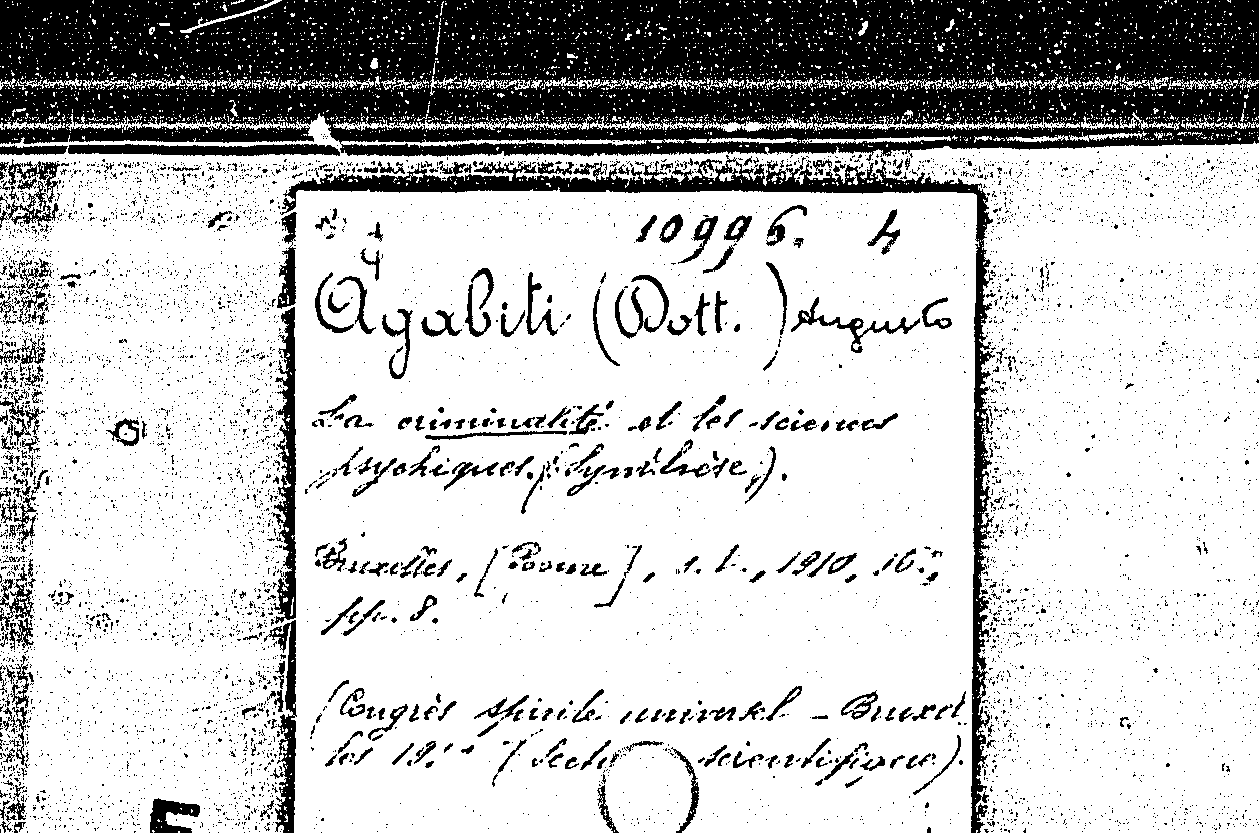 10996. 4
Agabiti (Dott.) Augusto
La criminalité et les sciences
psychiques. (Synthèse).
Bruxelles, [Rome], s. t., 1910, 16°,
pp. 8.
(Congrès spirite universel - Bruxel
les (Section scientifique).
E